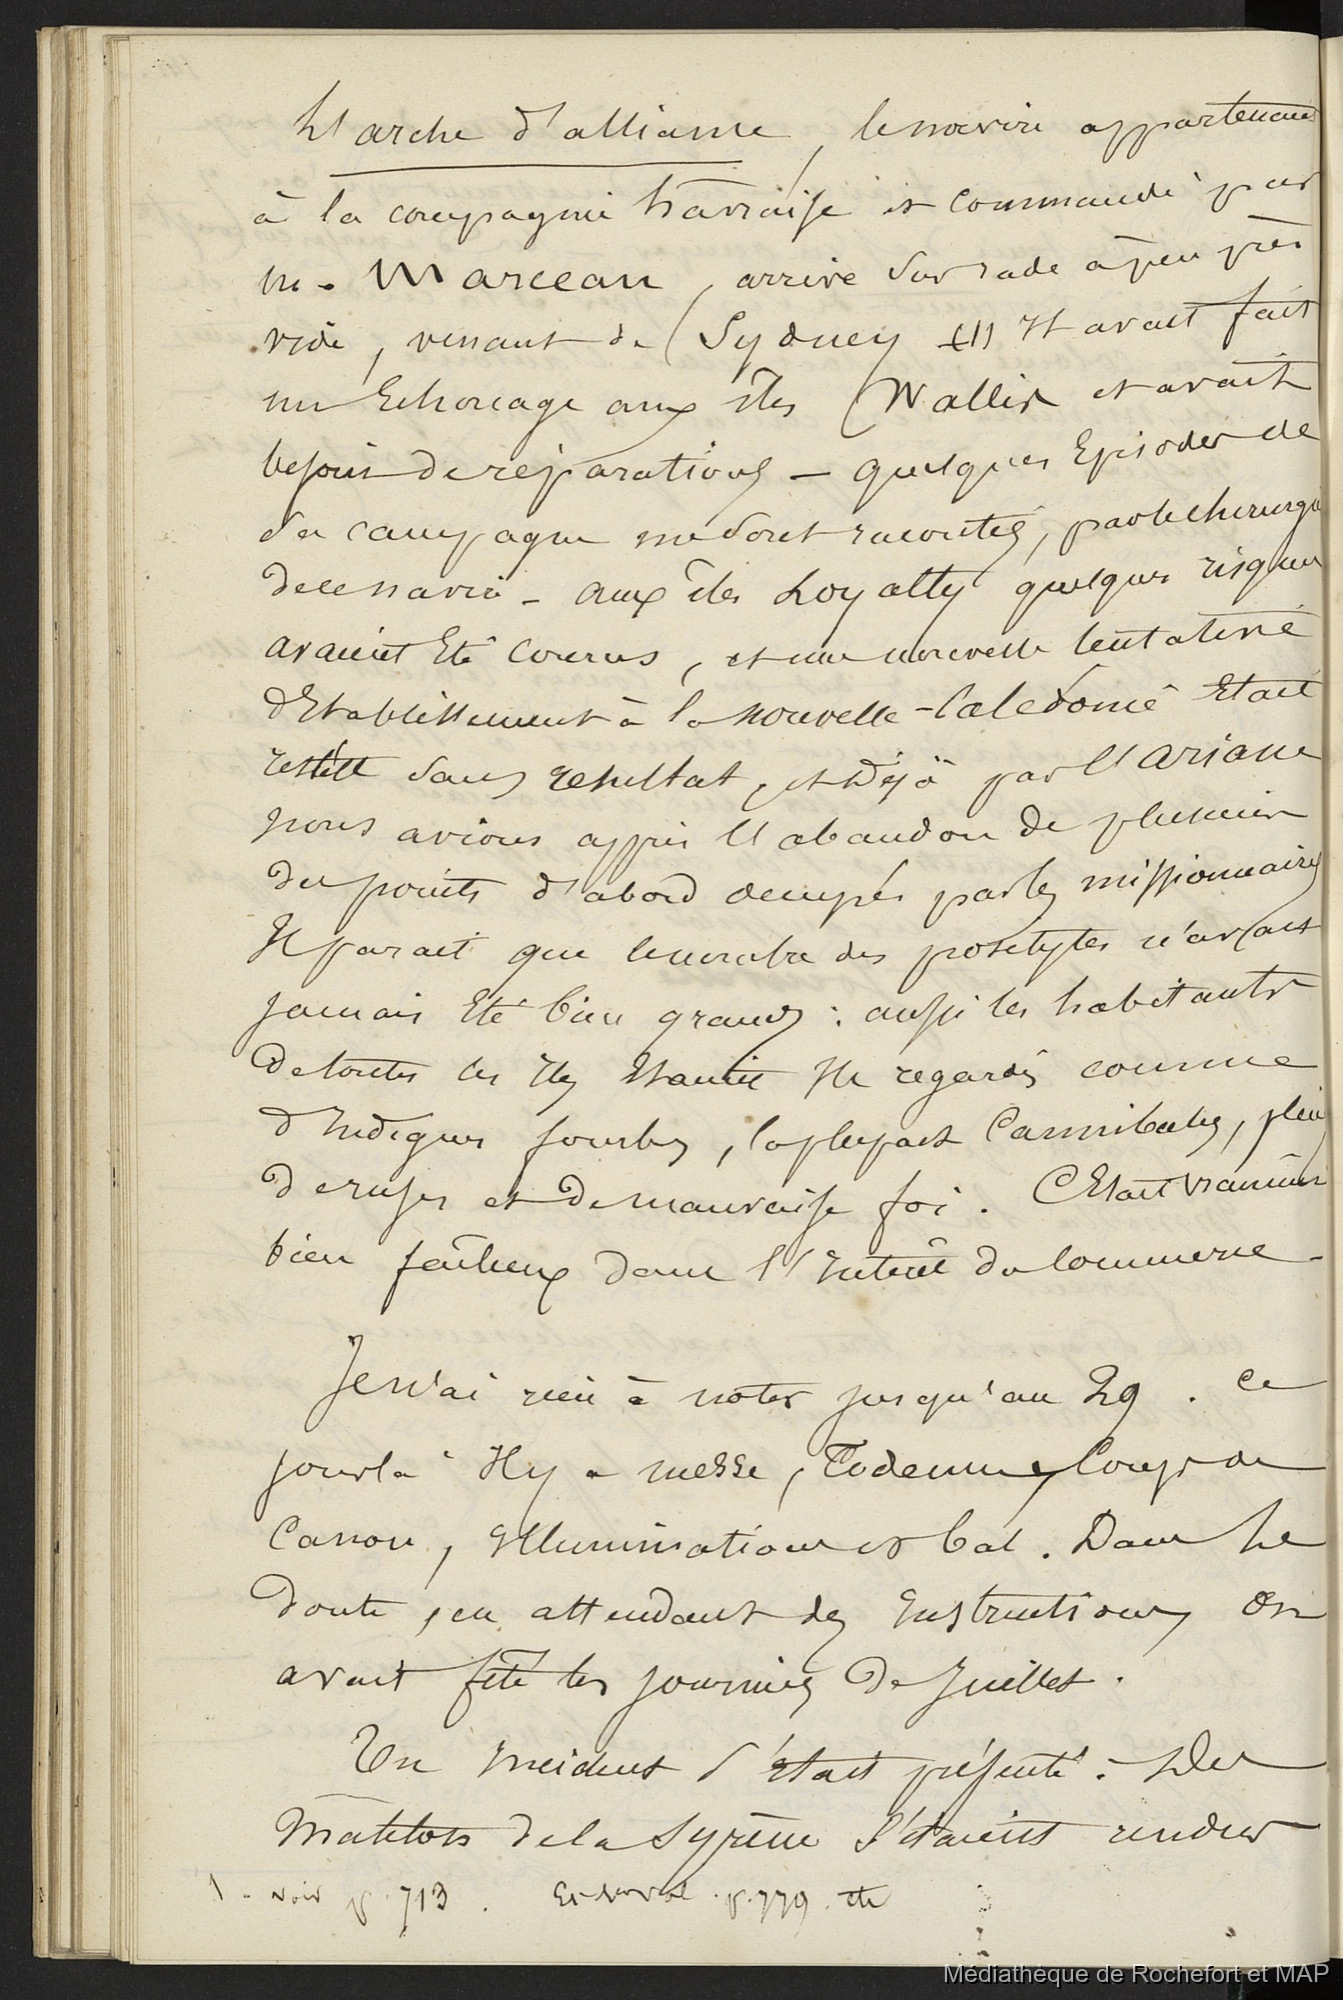 L'arche d'alliance, le navire appartenant
à la compagnie havraise et commandé par
m. Marceau, arrive sur rade à peu près
vide, venant de Sydney (1) Il avait fait
un Echouage aux îles Wallis et avait
besoin de réparations - quelques Episodes de
sa campagne me sont racontés, par le chirurgi
de ce navire - aux îles Loyalty quelques risques
avaient Eté courus, et une nouvelle tentative
d'Etablissement à la nouvelle-Calédonie Etait
restée sans resultat, et Déjà par l'Ariane
nous avions appris l'abandon de plusieurs
des points d'abord occupés par les missionnaires
Il parait que le nombre des proselytes n'avait
jamais Eté bien grand : aussi les habitants
de toutes ces Iles Etaient Ils regardés comme
d'Indignes fourbes, la plupart Cannibales, pleins
de ruses et de mauvaise foi. C'Etait vraiment
bien fâcheux dans l'Intérêt du Commerce -
Je n'ai rien à noter jusqu'au 29. Ce
jour là Il y a messe, Te deum, Coups de
Canon, Illuminations et bal. Dans le
doute, en attendant des Instructions on
avait fêté les journées de Juillet.
Un Incident s'était présenté. Des
Matelots de la Syrène s'étaient rendus
1 - voir p. 713. p. 779. etc
Médiathèque de Rochefort et MAP